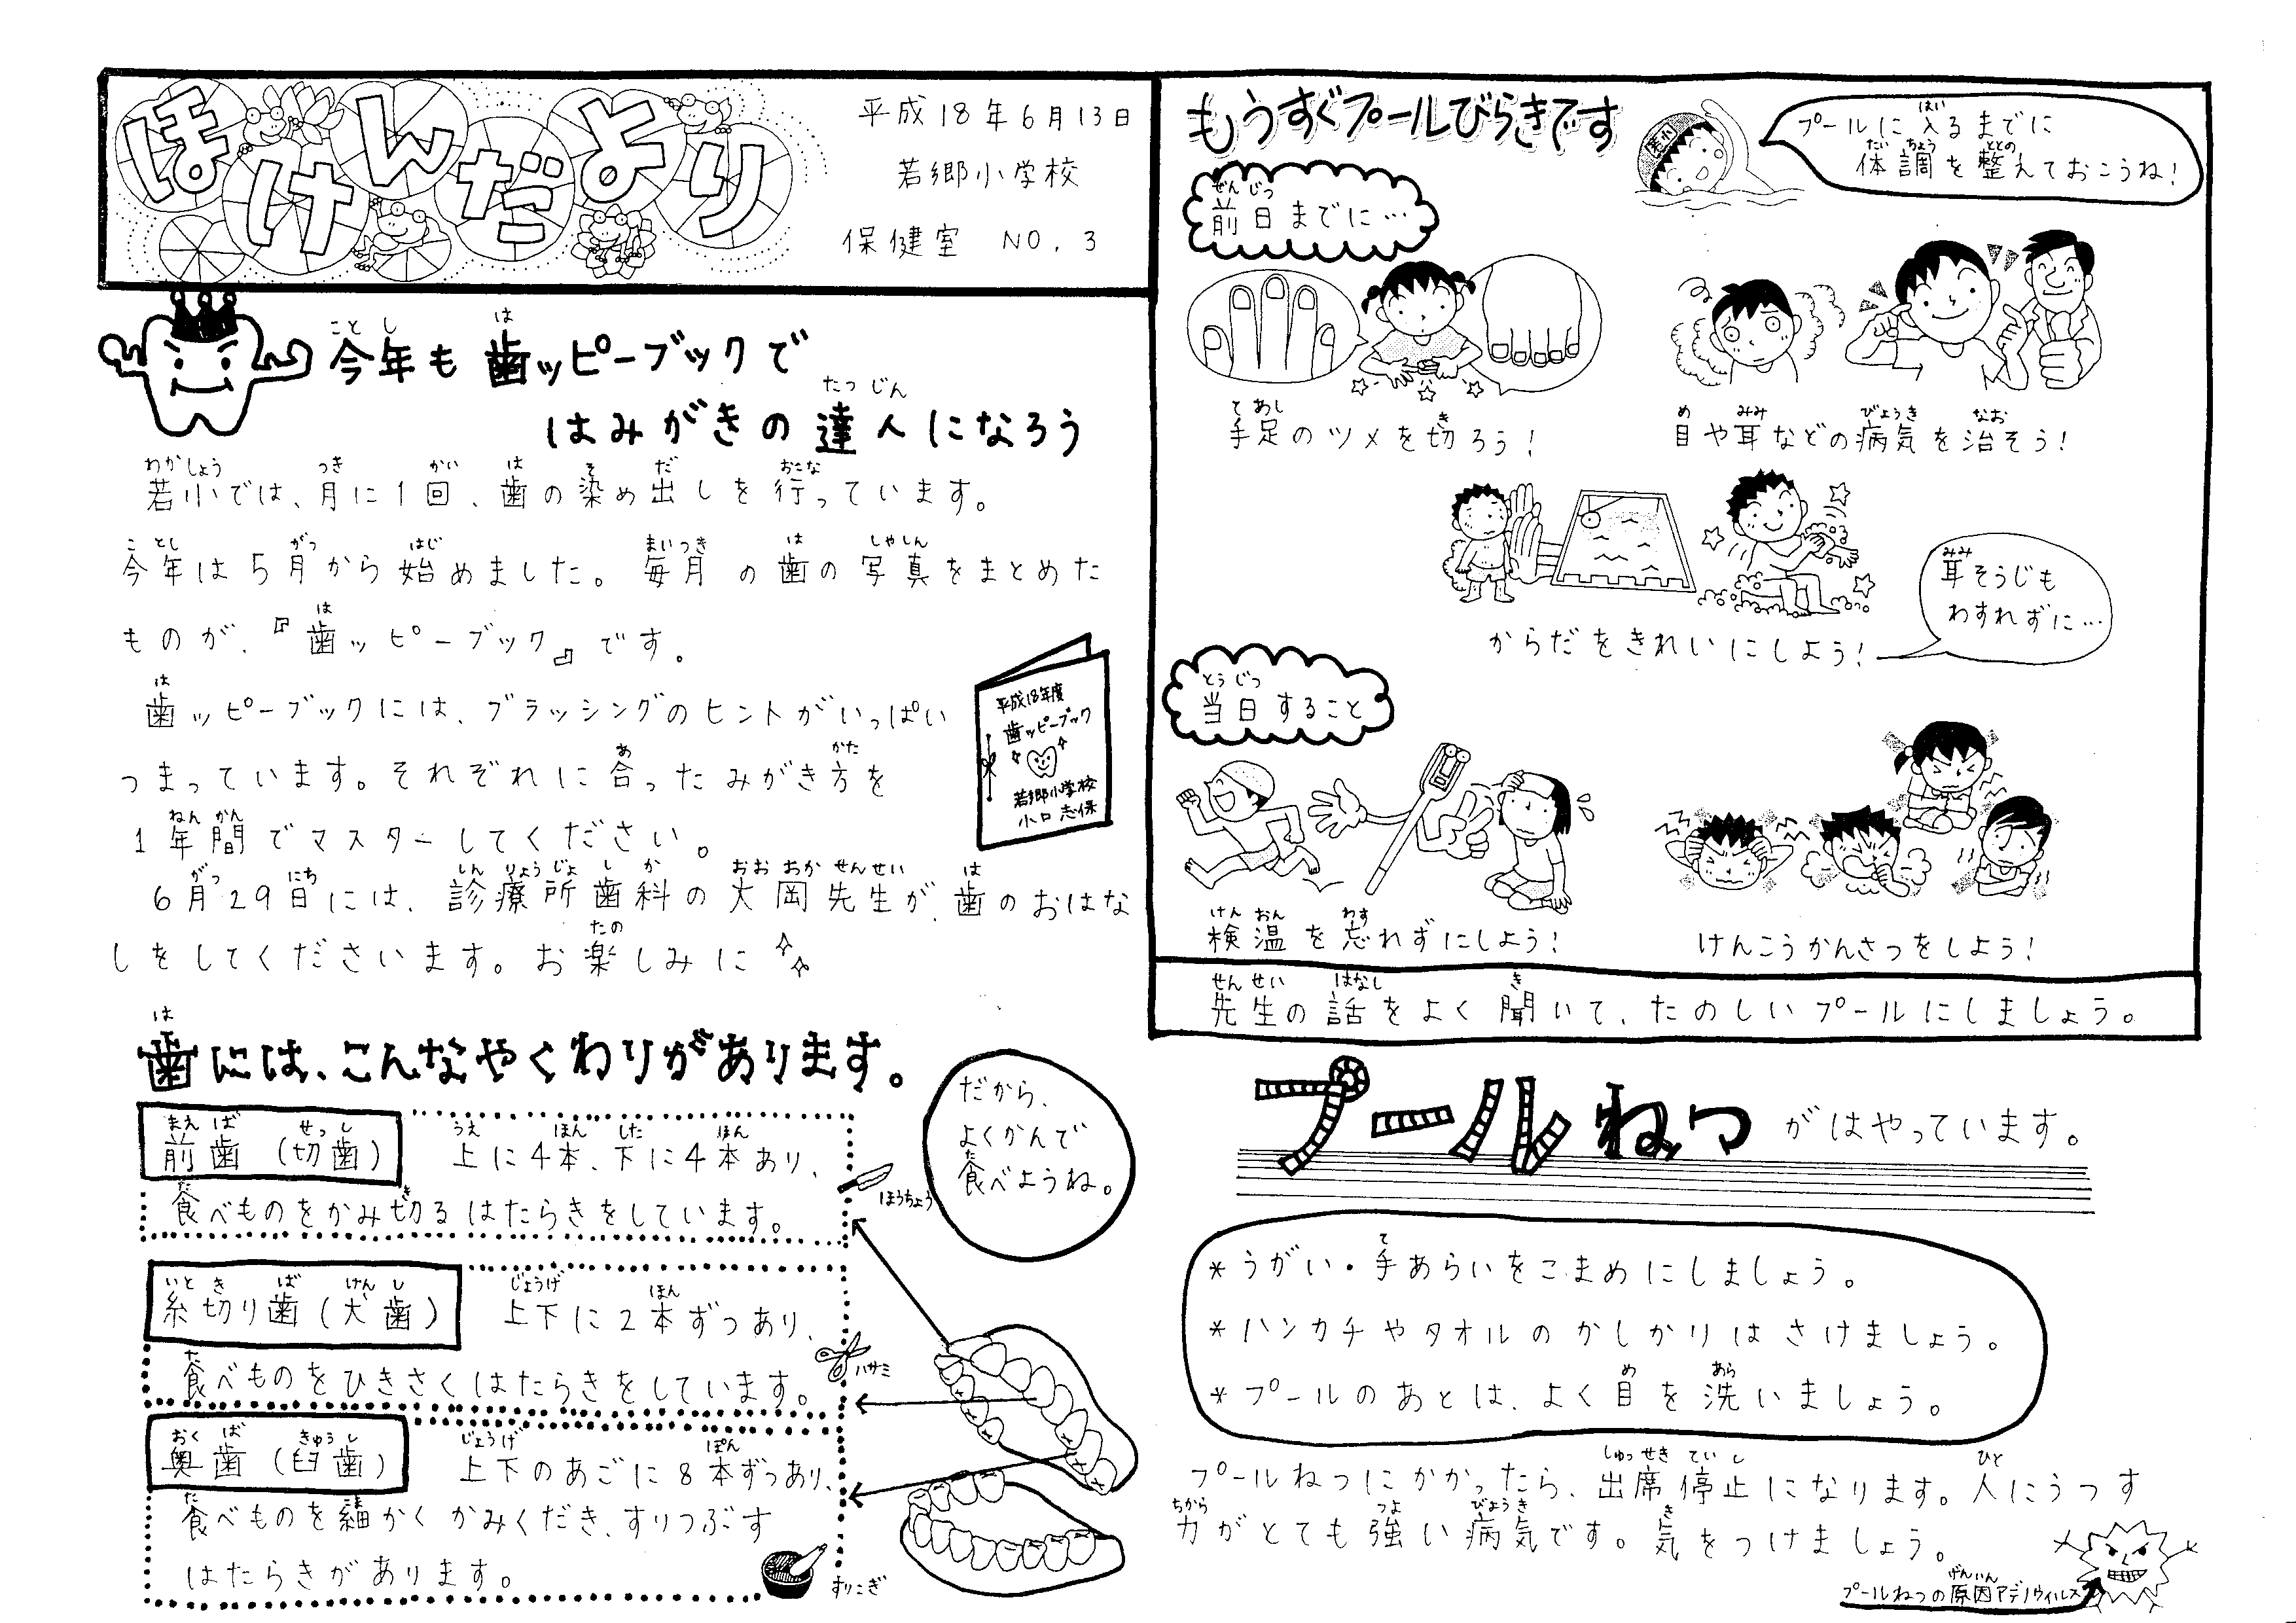 ほけんだより
平成18年6月13日
若郷小学校
保健室 NO.3
今年も歯ッピーブックで
はみがきの達人になろう
若小では、月に1回、歯の染め出しを行っています。
今年は5月から始めました。毎月の歯の写真をまとめた
ものが、『歯ッピーブック』です。
歯ッピーブックには、ブラッシングのヒントがいっぱい
つまっています。それぞれに合ったみがき方を
1年間でマスターしてください。
6月29日には、診療所歯科の大岡先生が、歯のおはな
しをしてくださいます。お楽しみに
平成18年度
歯ッピーブック
若郷小学校
小口志保
歯には、こんなやくわりがあります。
前歯(切歯) 上に4本、下に4本あり、
食べものをかみ切るはたらきをしています。
ほうちょう
糸切り歯(犬歯) 上下に2本ずつあり、
食べものをひきさくはたらきをしています。
ハサミ
奥歯(臼歯) 上下のあごに8本ずつあり、
食べものを細かくかみくだき、すりつぶす
はたらきがあります。
すりこぎ
だから、
よくかんで
食べようね。
もうすぐプールびらきです
若小
プールに入るまでに
体調を整えておこうね!
前日までに…
手足のツメを切ろう!
目や耳などの病気を治そう!
からだをきれいにしよう!
耳そうじも
わすれずに…
当日すること
検温を忘れずにしよう!
けんこうかんさつをしよう!
先生の話をよく聞いて、たのしいプールにしましょう。
プールねつがはやっています。
*うがい・手あらいをこまめにしましょう。
*ハンカチやタオルのかしかりはさけましょう。
*プールのあとは、よく目を洗いましょう。
プールねつにかかったら、出席停止になります。人にうつす
力がとても強い病気です。気をつけましょう。
プールねつの原因アデノウィルス